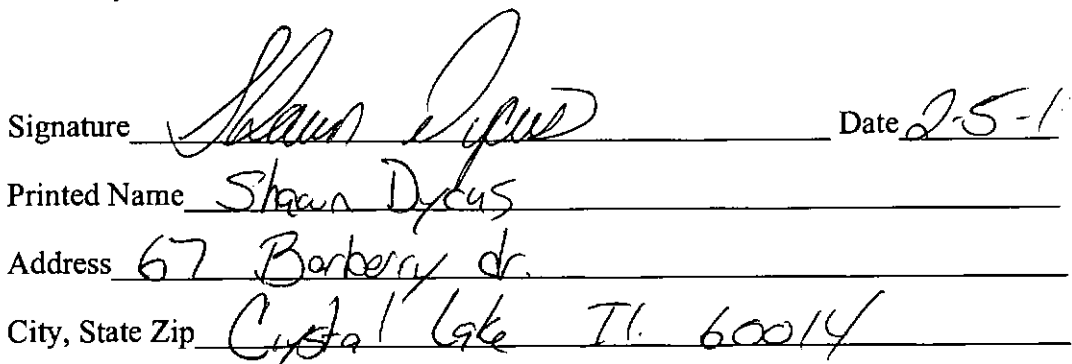 Signature Shawn Dycus Date 2-5-1
Printed Name Shawn Dycus
Address 67 Barberry dr.
City, State Zip Crystal Lake Il. 60014